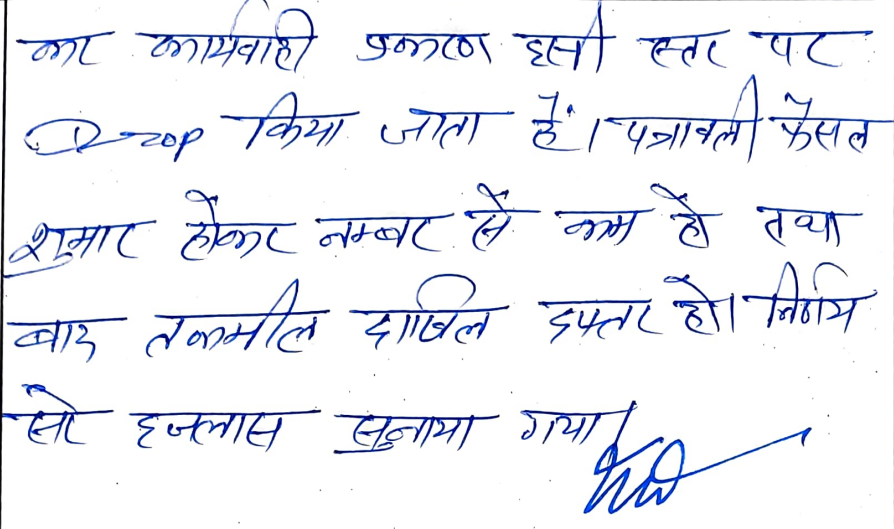 कर कार्यवाही प्रकरण इसी स्तर पर
Drop किया जाता हैं। पत्रावली फैसल
शुमार होकर नम्बर से कम हो तथा
बाद तकमील दाखिल दफ्तर हो। निर्णय
सरे इजलास सुनाया गया।